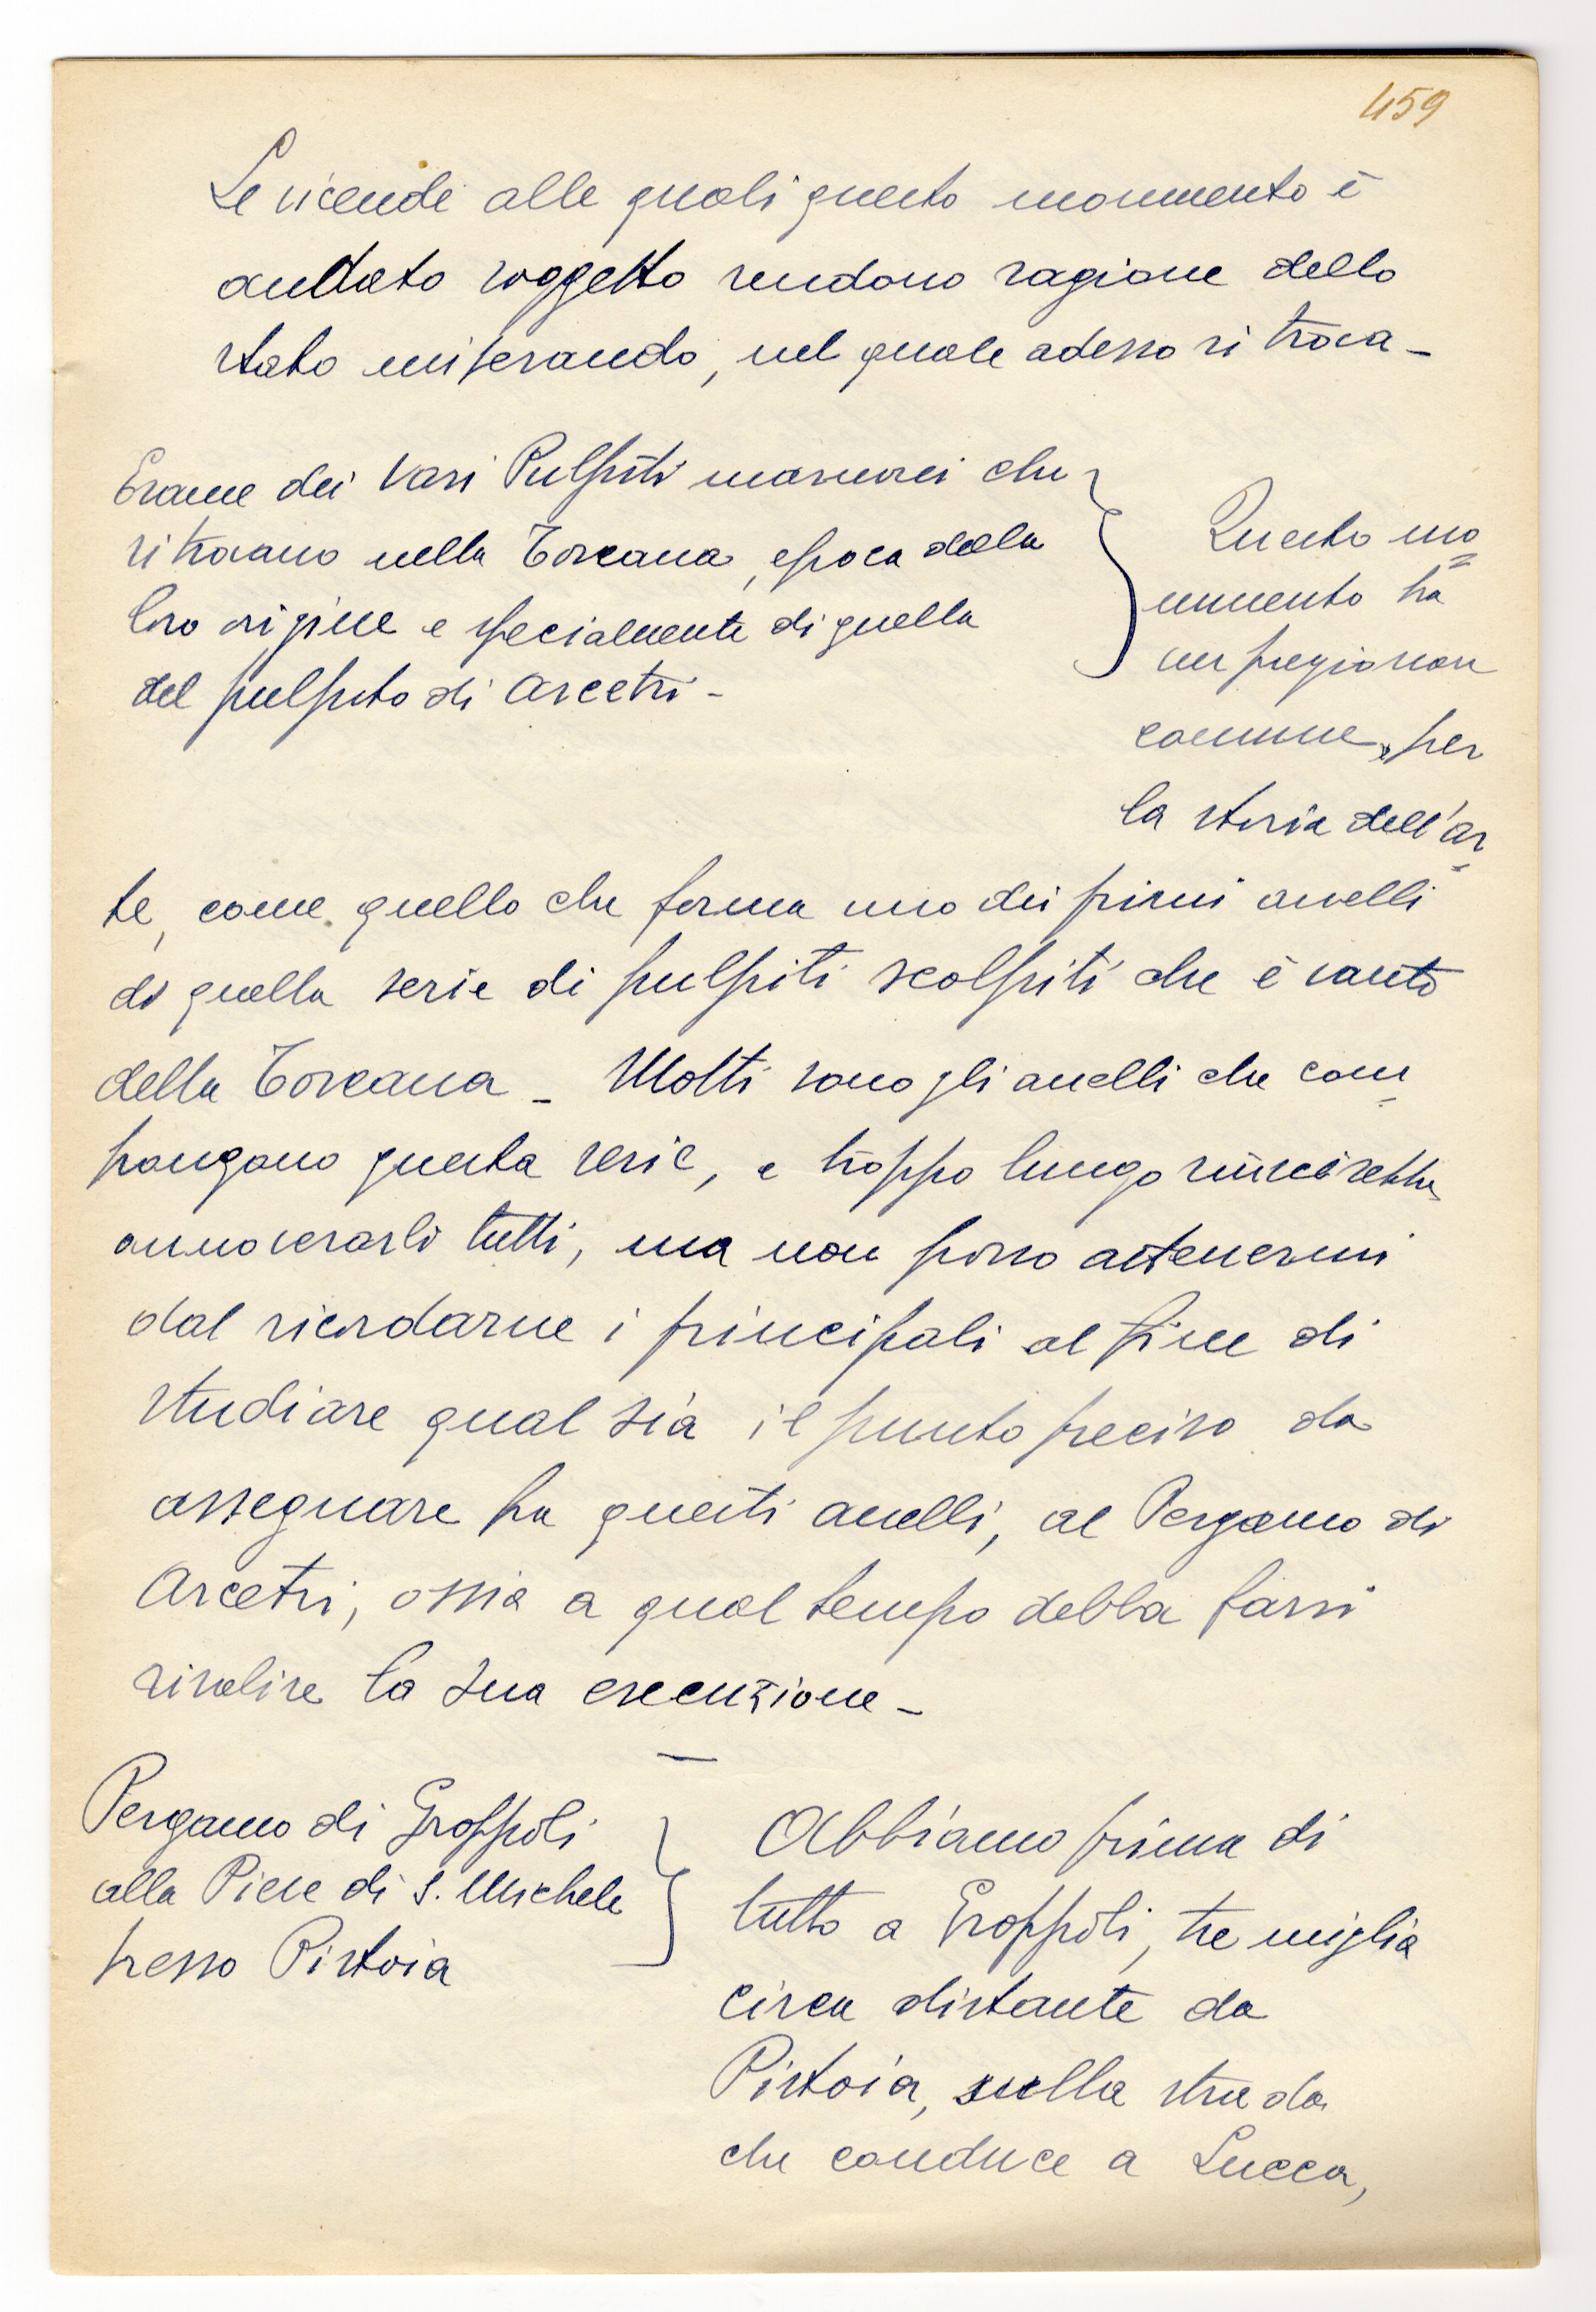 459
Le vicende alle quali questo monumento è
andato soggetto rendono ragione dello
stato miserando, nel quale adesso si trova -
Esame dei vari Pulpiti marmorei che
si trovano nella Toscana, epoca della
loro origine e specialmente di quella
del pulpito di Arcetri -
Questo mo
numento ha
un pregio non
comune, per
la storia dell'ar
te, come quello che forma uno dei primi anelli
di quella serie di pulpiti scolpiti che è vanto
della Toscana - Molti sono gli anelli che com
pongono questa serie, e troppo lungo riuscirebbe
annoverarli tutti, ma non posso astenermi
dal ricordarne i principali al fine di
studiare qual sia il punto preciso da
assegnare fra questi anelli, al Pergamo di
Arcetri, ossia a qual tempo debba farsi
risalire la sua esecuzione -
Pergamo di Groppoli
alla Pieve di S. Michele
presso Pistoia
Abbiamo prima di
tutto a Groppoli, tre miglia
circa distante da
Pistoia, sulla strada
che conduce a Lucca,